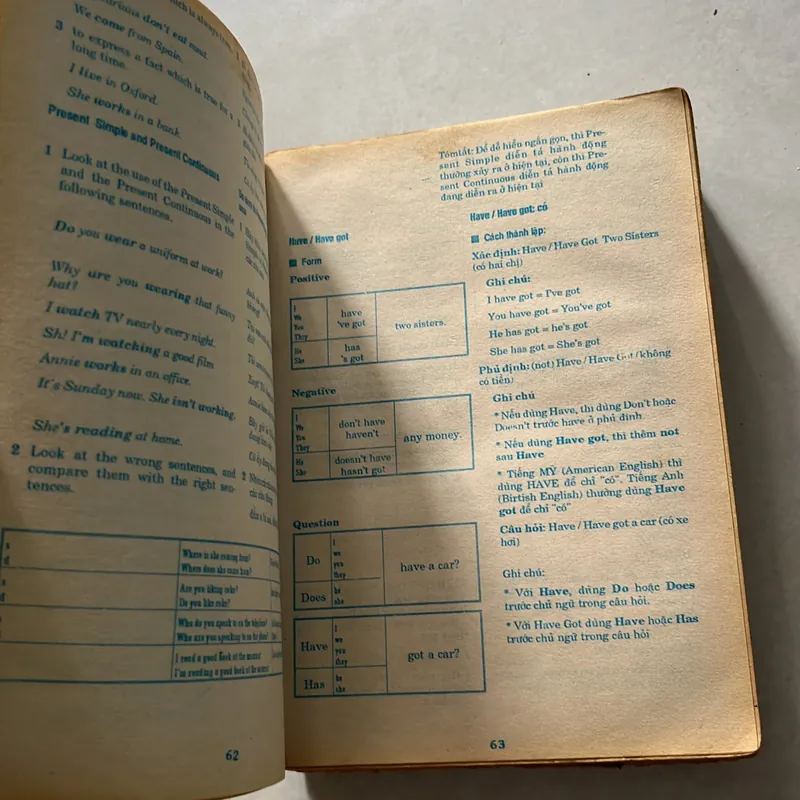 which is always true.
don't eat meat.
We come from Spain.
3 to express a fact which is true for a
long time.
I live in Oxford.
She works in a bank.
Present Simple and Present Continuous
1 Look at the use of the Present Simple
and the Present Continuous in the
following sentences.
Do you wear a uniform at work?
Why are you wearing that funny
hat?
I watch TV nearly every night.
Sh! I'm watching a good film
Annie works in an office.
It's Sunday now. She isn't working.
She's reading at home.
2 Look at the wrong sentences, and
compare them with the right sen-
tences.
Where is she coming from?
Where does she come from?
Are you liking coke?
Do you like coke?
Who do you speak to on the
Who are you speaking to on the
I read a good book at the moment
I'm reading a good book at the moment
62
Have / Have got
■ Form
Positive
I
We
You
They
have
've got
He
She
has
's got
two sisters.
Negative
I
We
You
They
don't have
haven't
He
She
doesn't have
hasn't got
any money.
Question
Do
I
we
you
they
Does
he
she
have a car?
Have
I
we
you
they
Has
he
she
got a car?
Tómlắt: Để dễ hiểu ngắn gọn, thì Pre-
sent Simple diễn tả hành động
thường xảy ra ở hiện tại, còn thì Pre-
sent Continuous diễn tả hành động
đang diễn ra ở hiện tại
Have / Have got: có
■ Cách thành lập:
Xác định: Have / Have Got Two Sisters
(có hai chị)
Ghi chú:
I have got = I've got
You have got = You've got
He has got = he's got
She has got = She's got
Phủ định: (not) Have / Have Got (không
có tiền)
Ghi chú
* Nếu dùng Have, thì dùng Don't hoặc
Doesn't trước have ở phủ định.
* Nếu dùng Have got, thì thêm not
sau Have
* Tiếng MỸ (American English) thì
dùng HAVE để chỉ "có". Tiếng Anh
(Birtish English) thường dùng Have
got để chỉ "có"
Câu hỏi: Have / Have got a car (có xe
hơi)
Ghi chú:
* Với Have, dùng Do hoặc Does
trước chủ ngữ trong câu hỏi.
* Với Have Got dùng Have hoặc Has
trước chủ ngữ trong câu hỏi
63